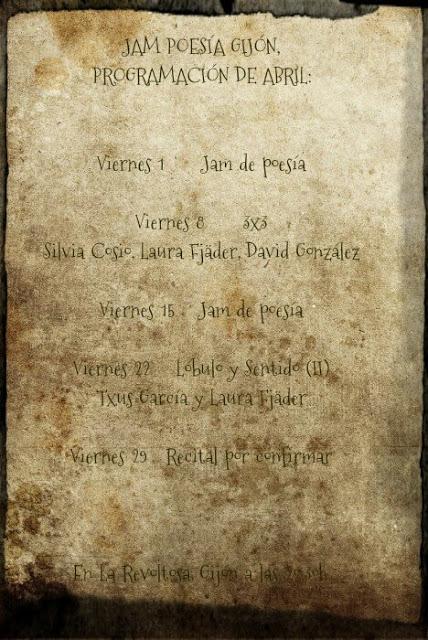 JAM POESÍA GIJÓN,
PROGRAMACIÓN DE ABRIL:
Viernes 1 Jam de poesía
Viernes 8 3x3
Silvia Cosio, Laura Fjäder, David González
Viernes 15 Jam de poesía
Viernes 22 Lóbulo y Sentido (II)
Txus García y Laura Fjäder
Viernes 29 Recital por confirmar
En La Revoltosa, Gijón a las